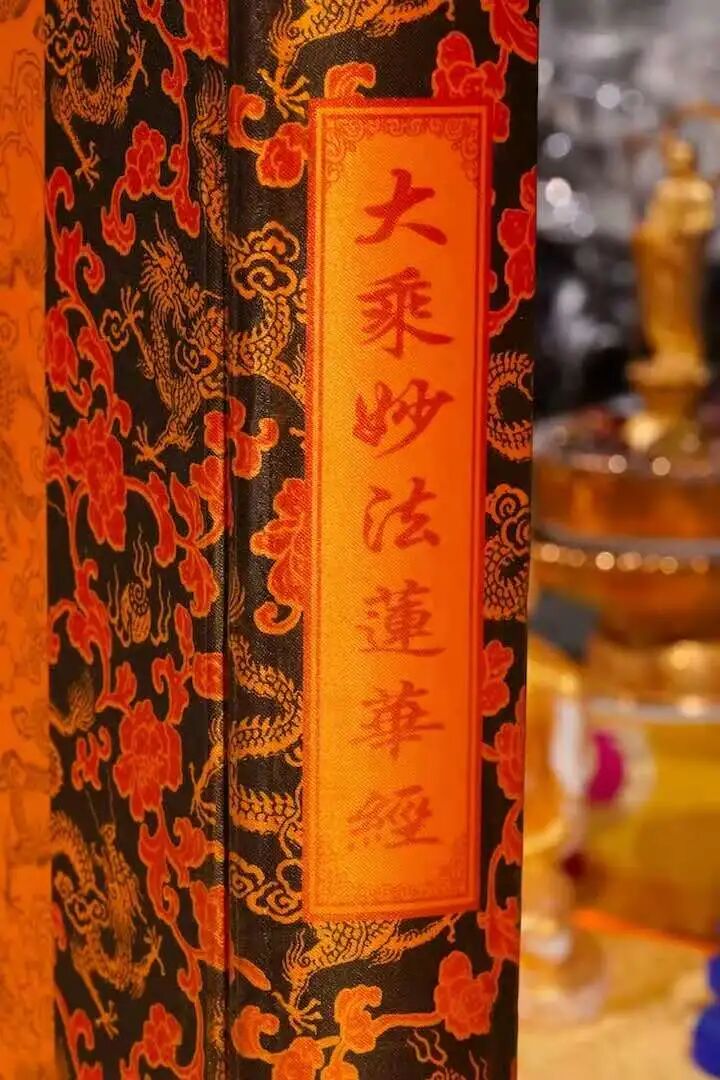 大乘妙法蓮華經